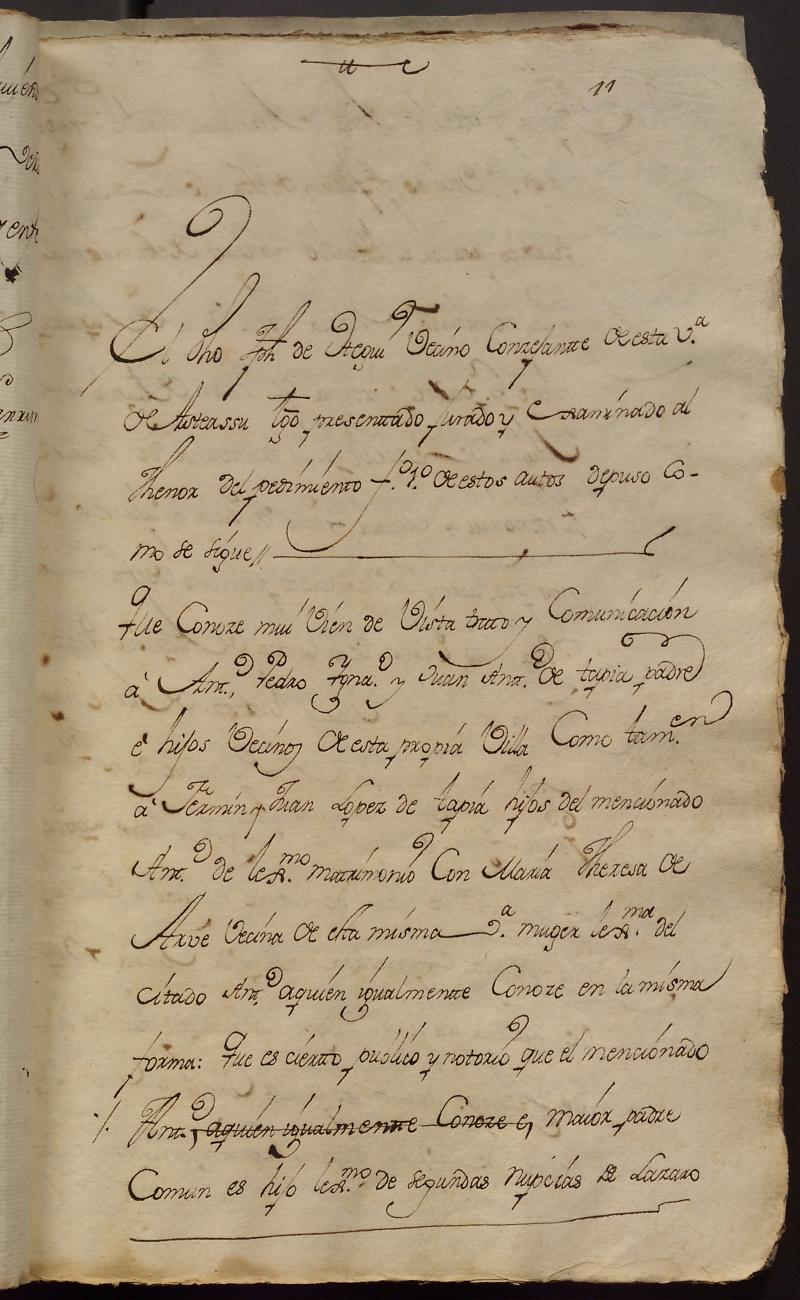 11
El dho Jph de Ategui Vecino Concejante de esta V.ª
de Asteassu tgo presentado jurado y examinado al
thenor del pedimiento f.º 1.º de estos autos depuso co-
mo se sigue //
Que Conoze mui Vien de Vista trato y Comunicación
à Ant.º, Pedro Ygna.º y Juan Ant.º de tapia padre
è hijos Vecinos de esta propia Villa Como tam.en
à Fermin y Juan Lopez de tapia hijos del mencionado
Ant.º de lex.mo matrimonio Con María Theresa de
Arve Vecina de esta misma V.ª muger lex.ma del
citado Ant.º aquien igualmente Conoze en la misma
forma: Que es cierto publico y notorio que el mencionado
./. Ant.º, aquien igualmente Conoze e, maior padre
Comun es hijo lex.mo de segundas nupcias de Lazaro